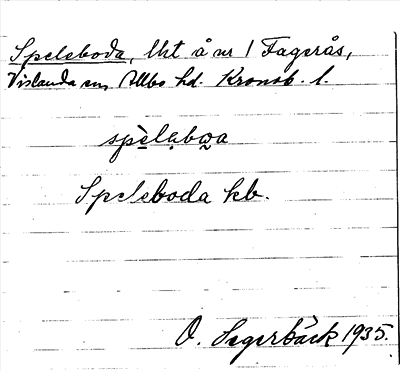 Speleboda, lht å nr 1 Fagerås,
Vislanda sn, Allbo hd. Kronob. l.
spèlabo̰a
Speleboda kb.
O. Segerbäck 1935.